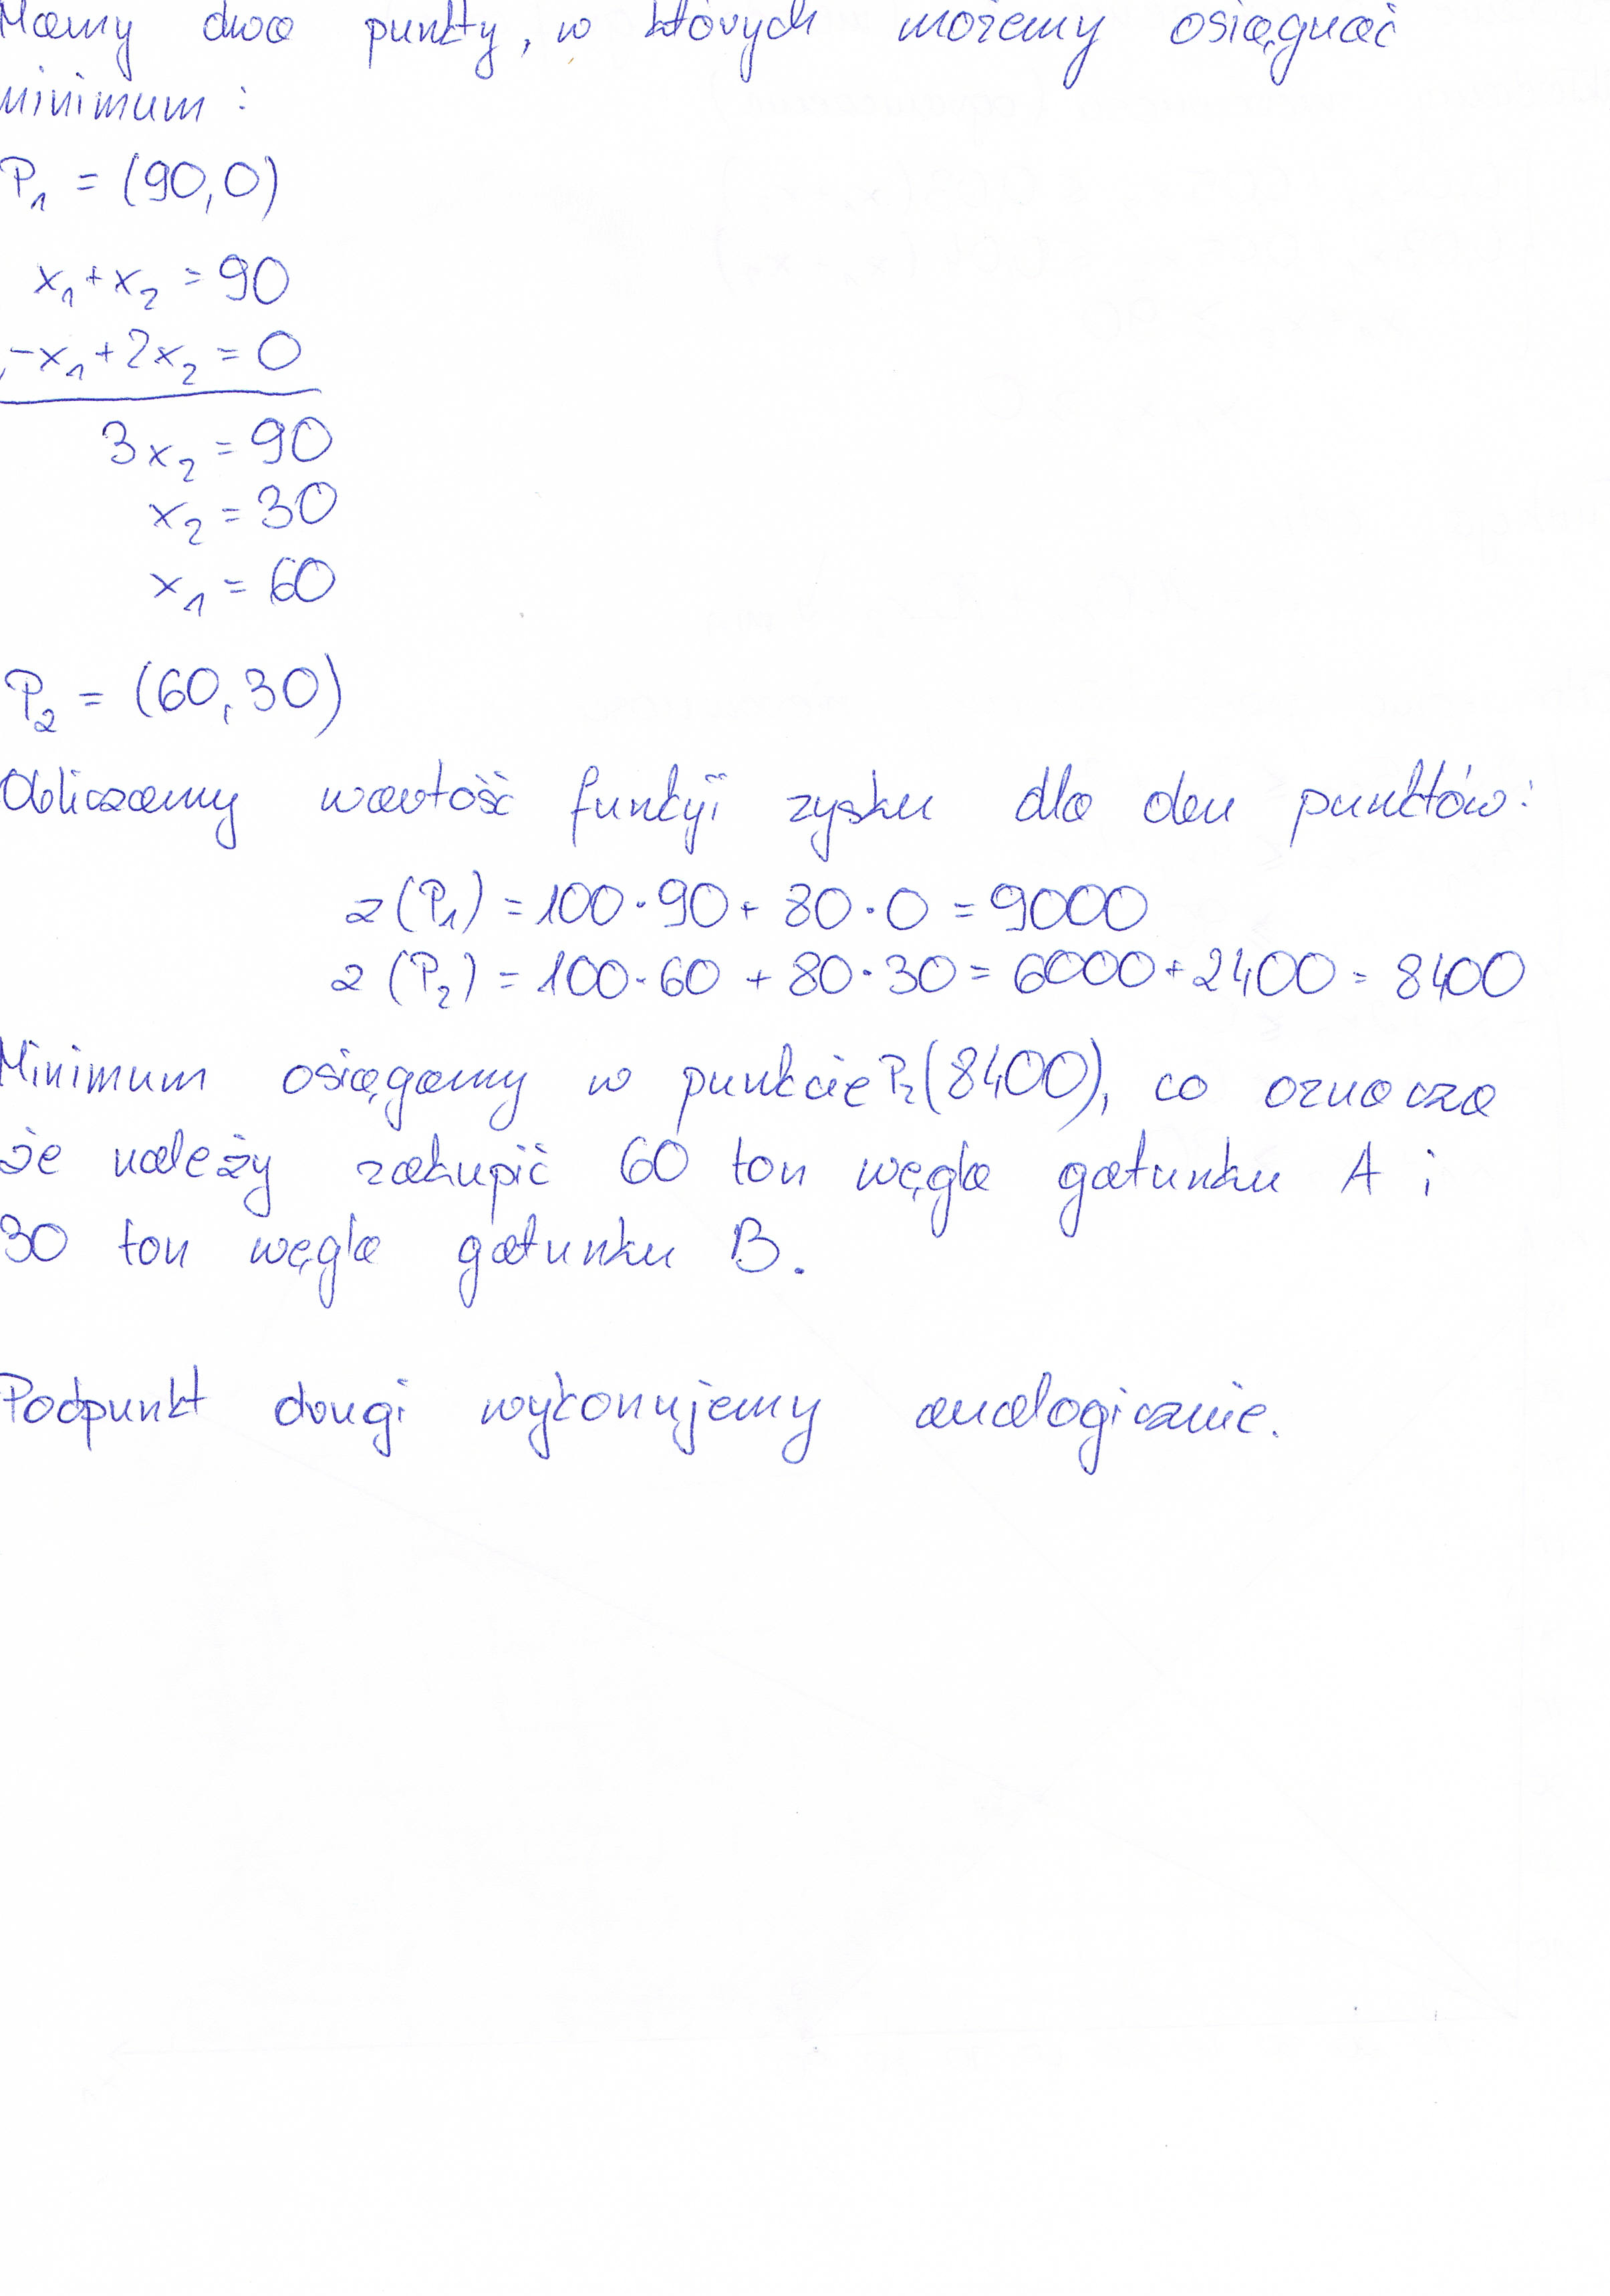 Mamy dwa punkty, w których możemy osiągnąć
minimum :
P₁ = (90,0)
x₁ + x₂ = 90
-x₁ + 2x₂ = 0
3x₂ = 90
x₂ = 30
x₁ = 60
P₂ = (60,30)
Obliczamy wartość funkcji zysku dla obu punktów:
z (P₁) = 100 · 90 + 80 · 0 = 9000
z (P₂) = 100 · 60 + 80 · 30 = 6000 + 2400 = 8400
Minimum osiągamy w punkcie P₂ (8400), co oznacza
że należy zakupić 60 ton węgla gatunku A i
30 ton węgla gatunku B.
Podpunkt drugi wykonujemy analogicznie.